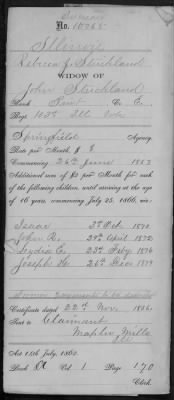 No. 10268
Illinois
Rebecca J. Strickland
WIDOW OF
John Strickland
Rank Co. E.
Regt. 103d Ill Vols
Springfield Agency.
Rate per Month $ 8
Commencing 26th June 1863
Additional sum of $2 per month for each
of the following children, until arriving at the age
of 16 years, commencing July 25, 1866, viz:
Isaac 3d Oct 1870
John R. 29th April 1872
Lydia E. 23d Feby 1876
Joseph H. 26th 1879
Former payments to be deducted
Certificate dated 22d Nov. 1886.
Sent to Claimant
Maples Mills
Ill
Act 14th July, 1862.
Book A Vol. 1 Page 170
Clerk.